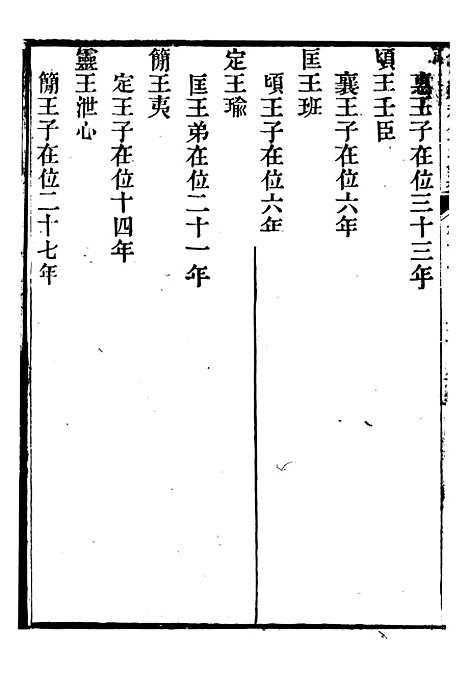 惠王子在位三十三年
頃王壬臣
襄王子在位六年
匡王班
頃王子在位六年
定王瑜
匡王弟在位二十一年
簡王夷
定王子在位十四年
靈王泄心
簡王子在位二十七年